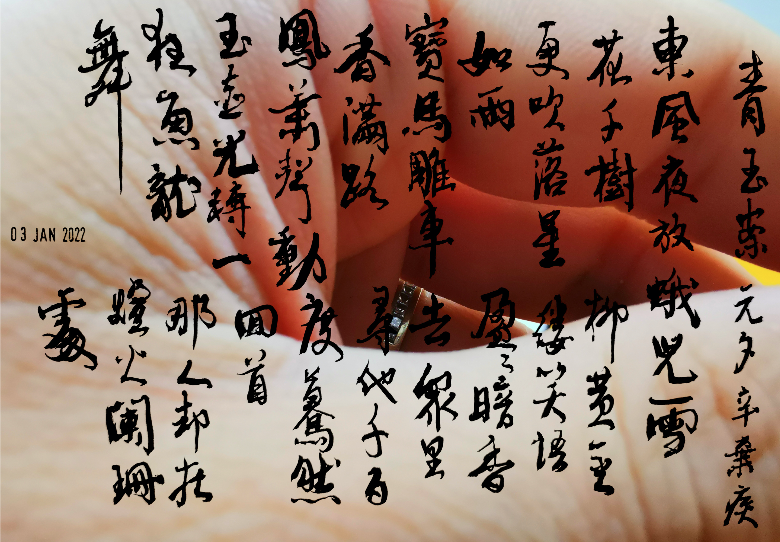 青玉案 元夕 辛棄疾
東風夜放
花千樹
更吹落星
如雨
寶馬雕車
香滿路
鳳簫聲動
玉壺光轉一
夜魚龍
舞
蛾兒雪
柳黃金
縷笑語
盈々暗香
去衆里
尋他千百
度驀然
回首
那人卻在
燈火闌珊
處
03 JAN 2022